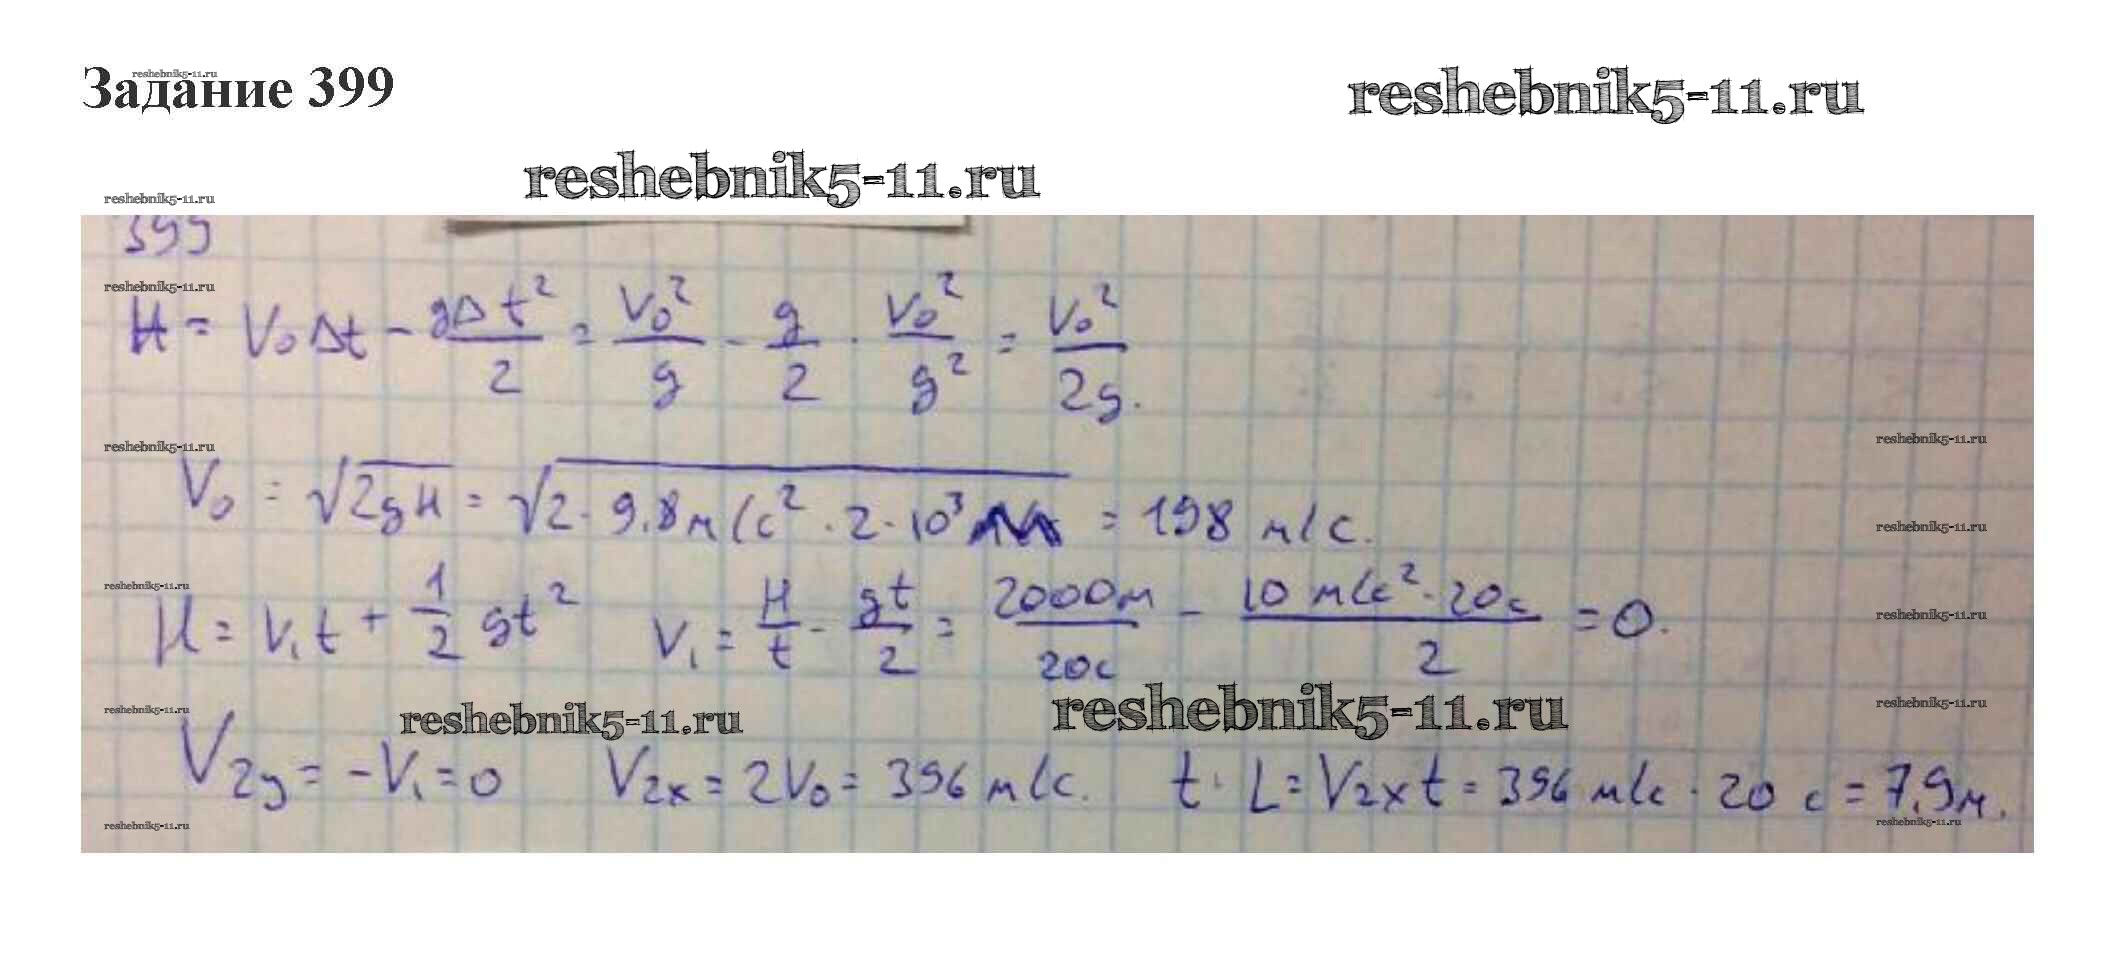 Задание 399
reshebnik5-11.ru
reshebnik5-11.ru
reshebnik5-11.ru
reshebnik5-11.ru
399
reshebnik5-11.ru
H = V₀Δt - gΔt²/2 = V₀²/g - g/2 · V₀²/g² = V₀²/2g.
reshebnik5-11.ru
reshebnik5-11.ru
V₀ = √2gH = √2 · 9,8 м/с² · 2 · 10³ м = 198 м/с.
reshebnik5-11.ru
reshebnik5-11.ru
H = V₁t + 1/2 gt² V₁ = H/t - gt/2 = 2000м/20с - 10 м/с² · 20с/2 = 0.
reshebnik5-11.ru
reshebnik5-11.ru
reshebnik5-11.ru
reshebnik5-11.ru
reshebnik5-11.ru
V₂y = -V₁ = 0 V₂x = 2V₀ = 396 м/с. t · L = V₂xt = 396 м/с · 20 с = 7,9м.
reshebnik5-11.ru
reshebnik5-11.ru